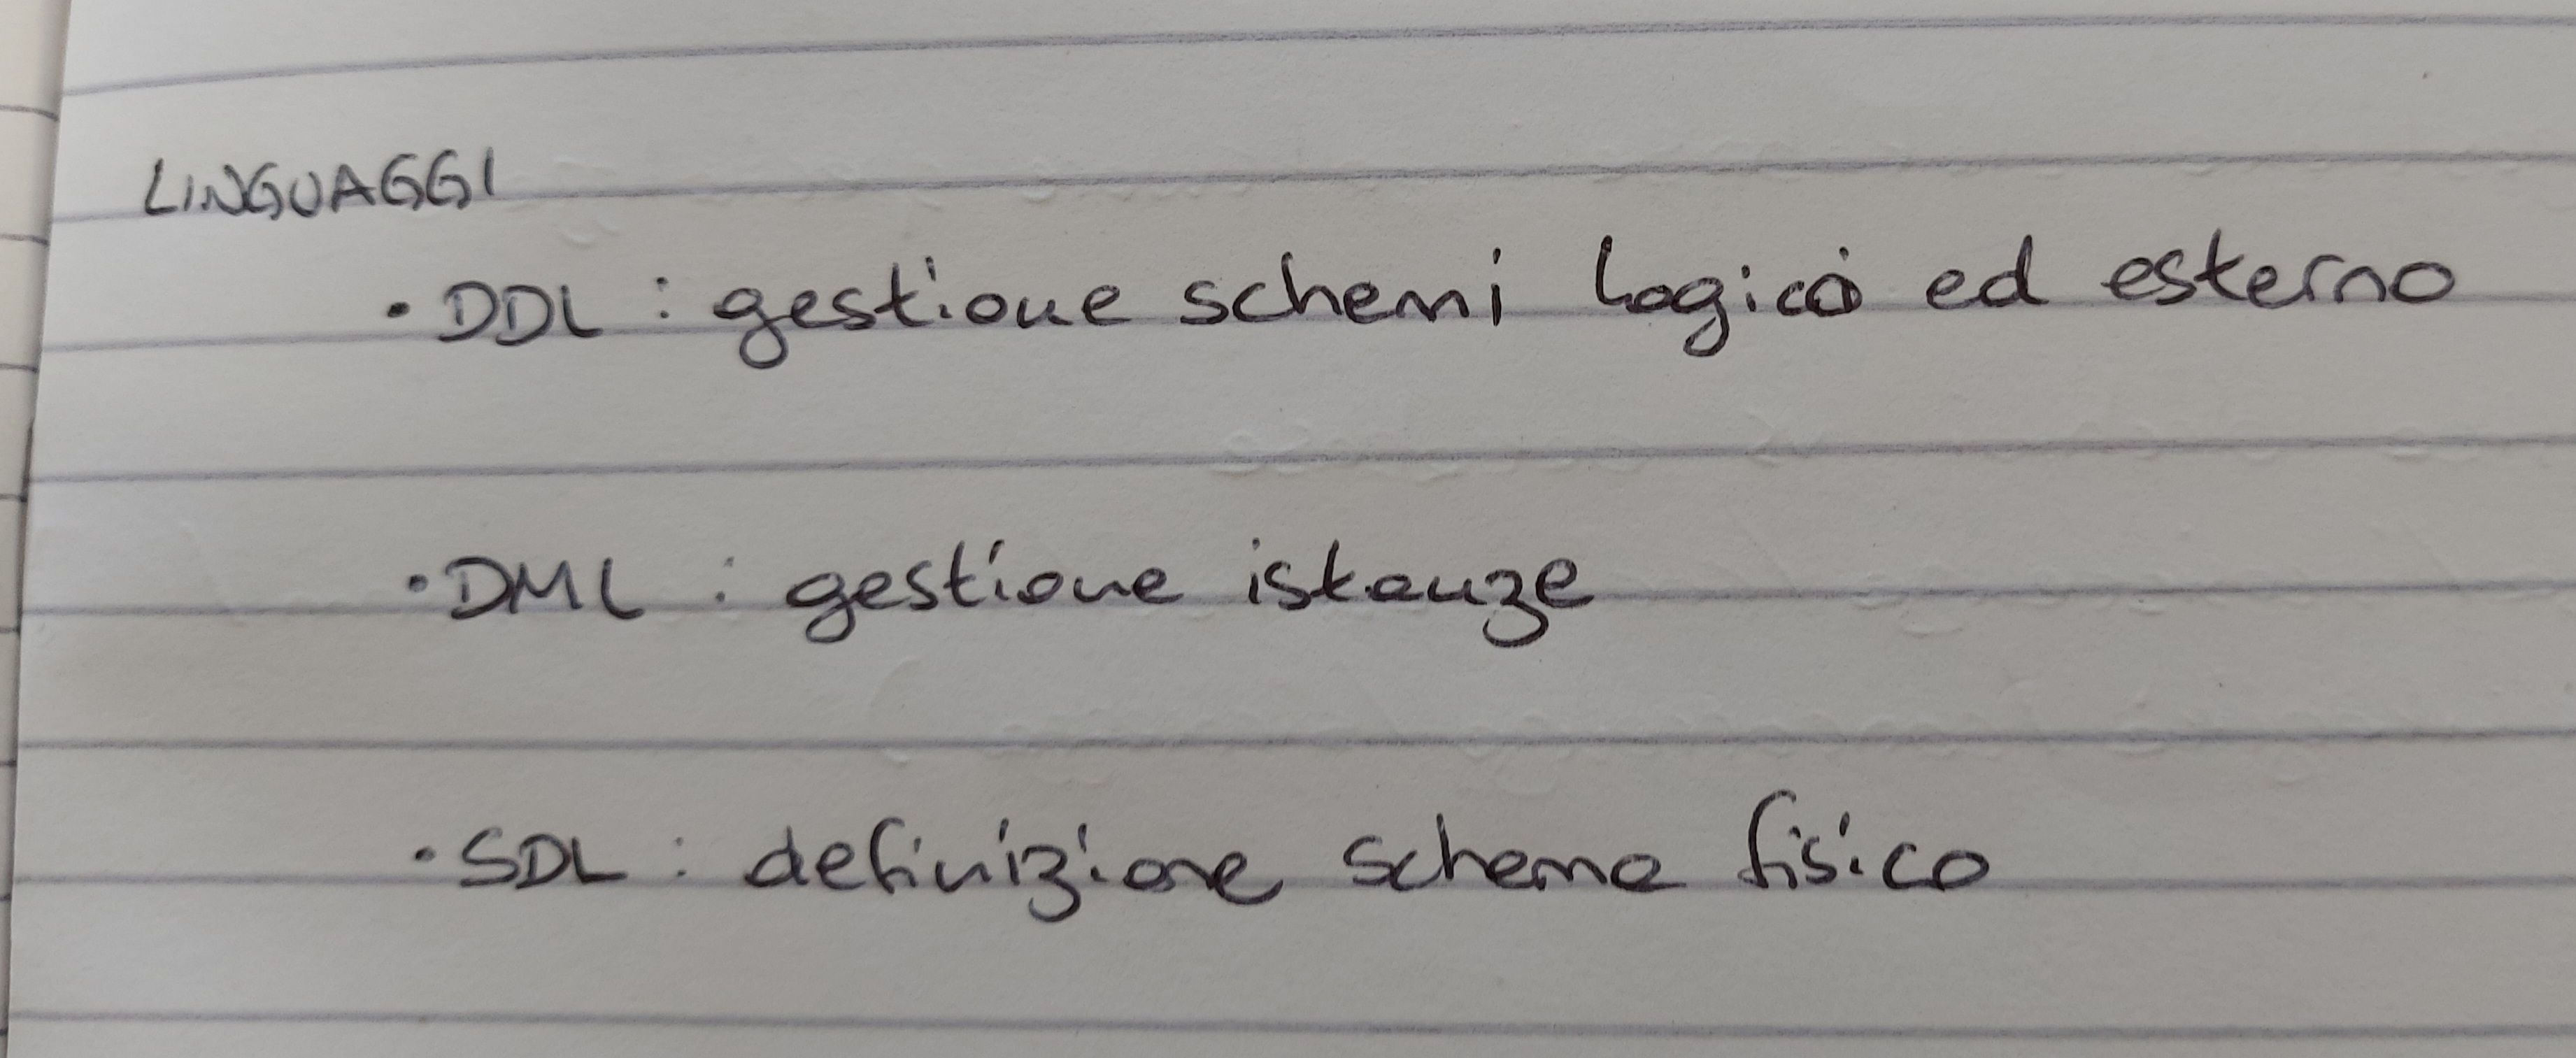 LINGUAGGI
• DDL : gestione schemi logico ed esterno
• DML : gestione istanze
• SDL : definizione schema fisico